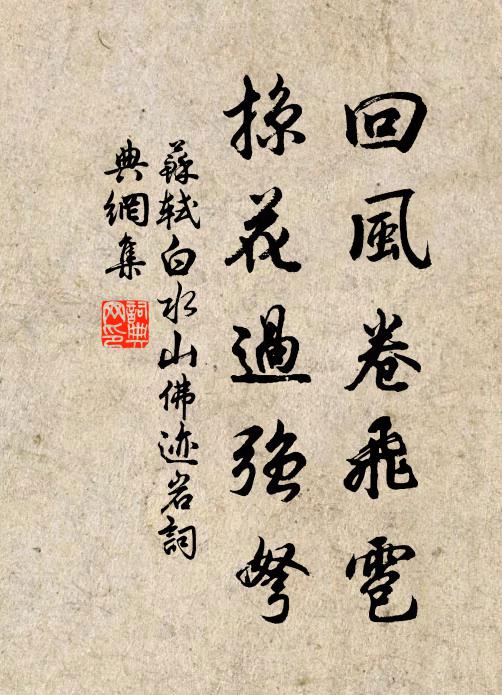 回風卷飛雹
掠花過強弩
蘇軾白水山佛迹岩詞
典網集
詞典
网印